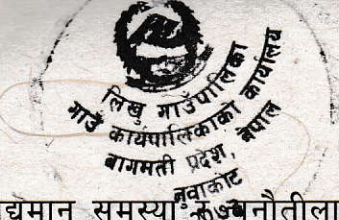 लिखु गाउँपालिका
गाउँ कार्यपालिकाको कार्यालय
बागमती प्रदेश, नेपाल
नुवाकोट
समस्या